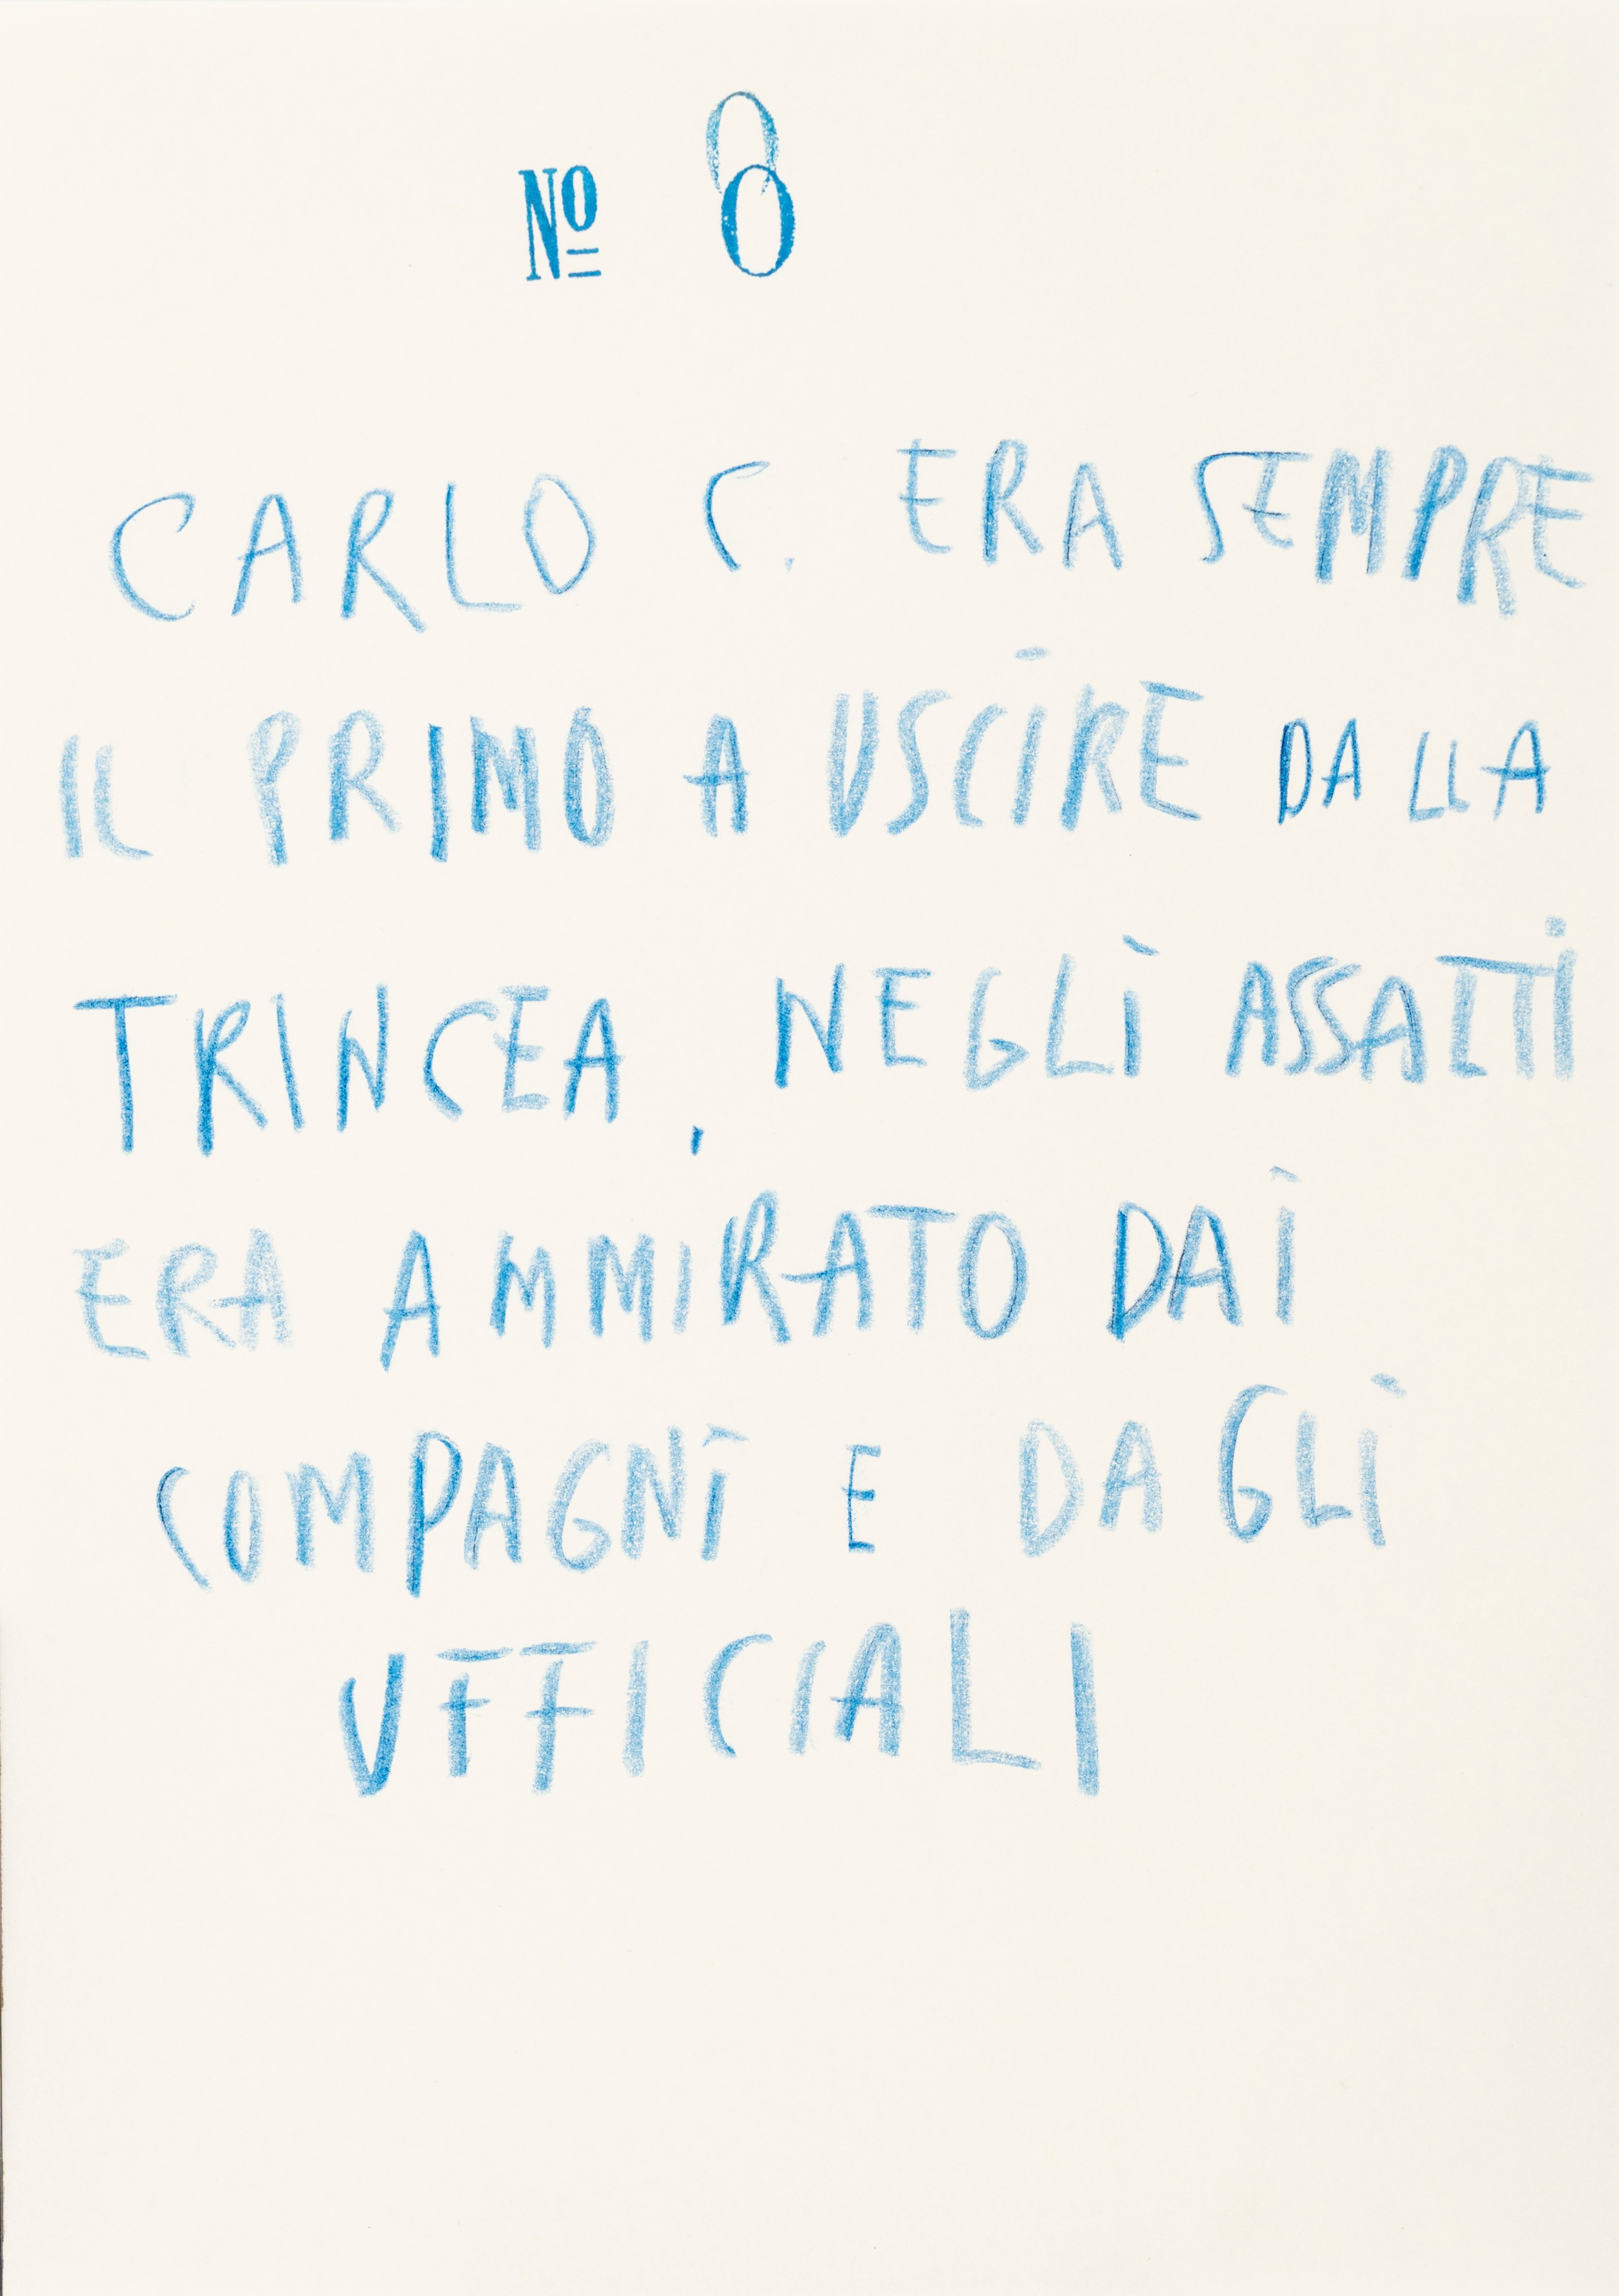 Nº 8
CARLO C. ERA SEMPRE
IL PRIMO A USCIRE DALLA
TRINCEA, NEGLI ASSALTI
ERA AMMIRATO DAI
COMPAGNI E DAGLI
UFFICIALI